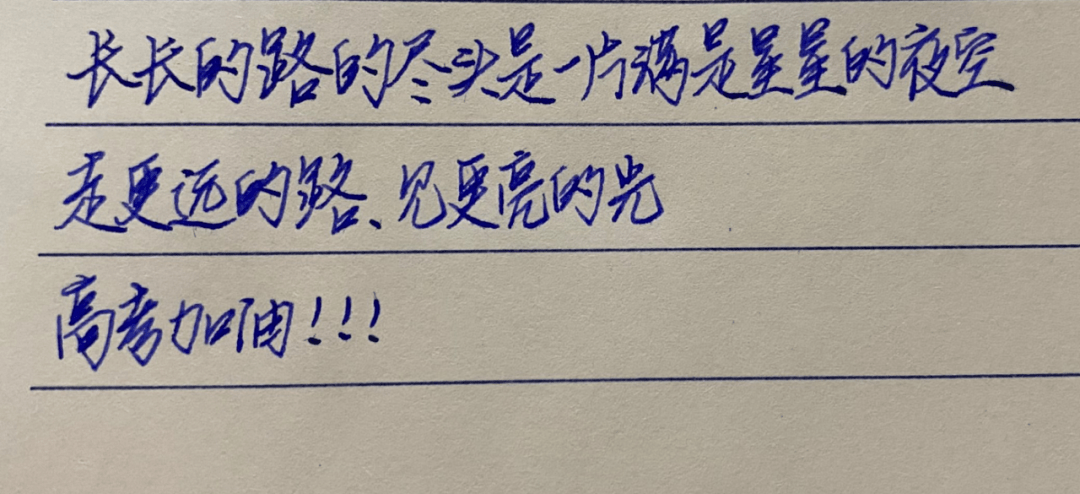 长长的路的尽头是一片满是星星的夜空
走更远的路、见更亮的光
高考加油!!!